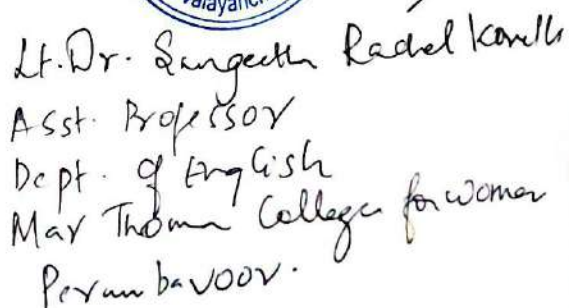 Valayanch
Lt. Dr. Sangeeth Rachel
Asst. Professor
Dept. of English
Mar Thoma College for women
Perumbavoor.